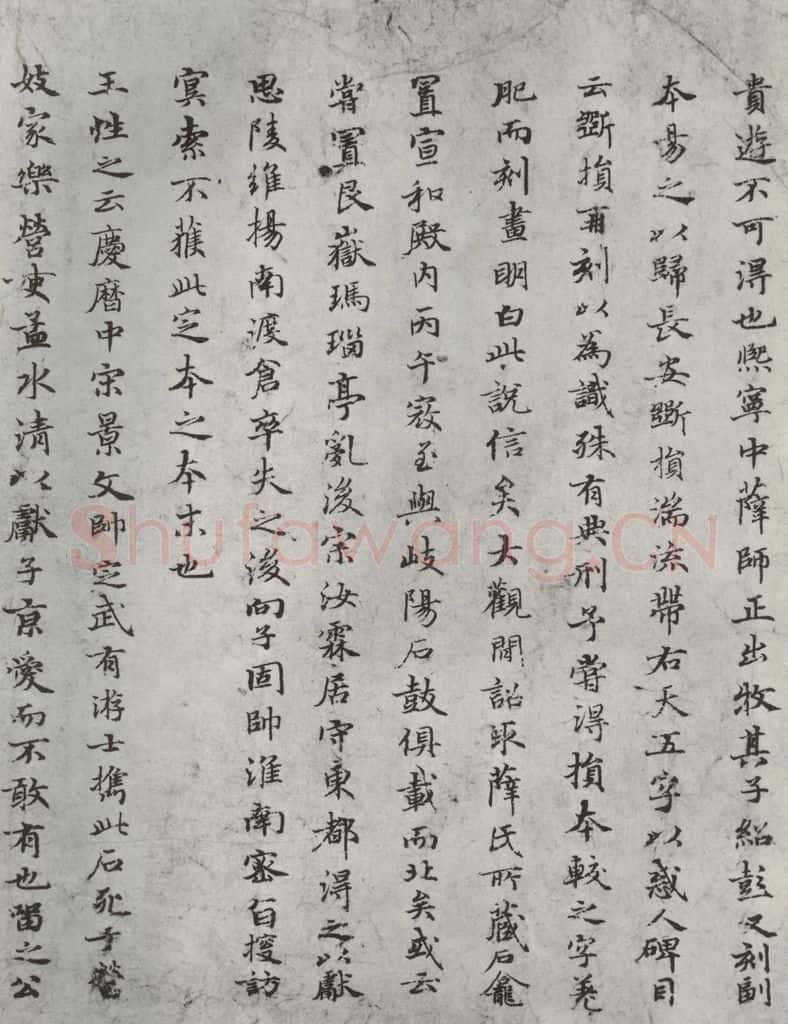 貴遊不可得也熙寧中薛師正出牧其子紹彭又刻副
本易之以歸長安斲損湍流帶右天五字以惑人碑目
云斲損再刻以為識殊有典刑予嘗得損本較之字差
肥而刻畫明白此說信矣大觀間詔取薛氏所藏石龕
置宣和殿內丙午寇至與岐陽石鼓俱載而北矣或云
嘗置艮嶽瑪瑙亭亂後宗汝霖居守東都得之以獻
思陵維揚南渡倉卒失之後向子固帥淮南密旨搜訪
冥索不獲此定本之本末也
王性之云慶曆中宋景文帥定武有游士攜此石死于營
妓家樂營吏孟水清以獻子京愛而不敢有也留之公
Shufawang.CN